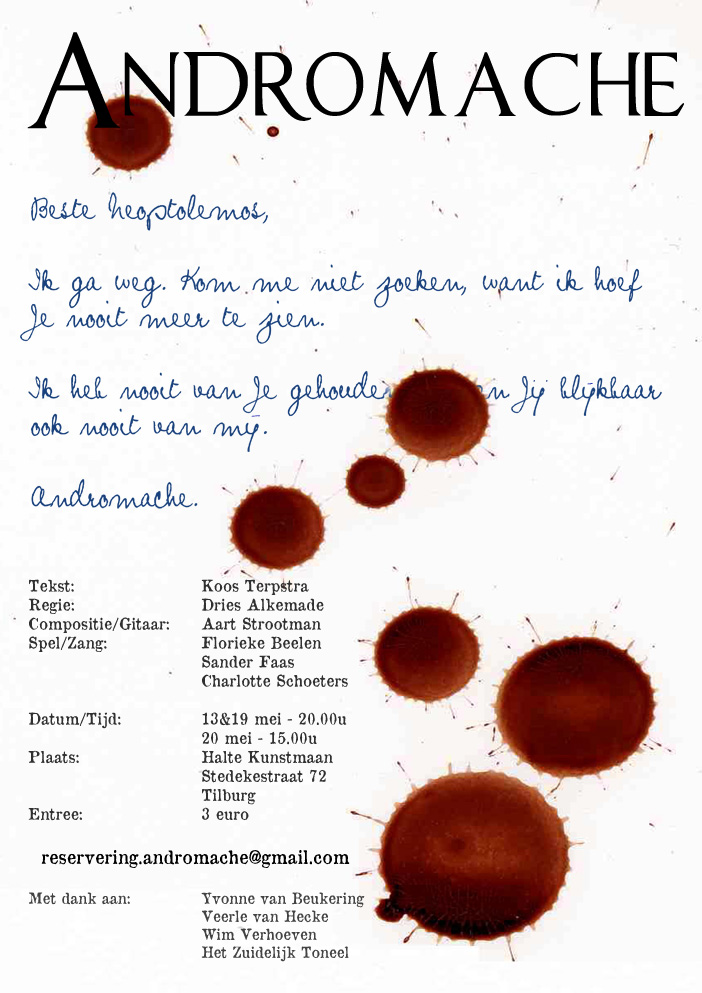 ANDROMACHE
Beste Neoptolemos,
Ik ga weg. Kom me niet zoeken, want ik hoef
Je nooit meer te zien.
Ik heb nooit van Je gehouden Jij blijkbaar
ook nooit van mij.
Andromache.
Tekst: Koos Terpstra
Regie: Dries Alkemade
Compositie/Gitaar: Aart Strootman
Spel/Zang: Florieke Beelen
Sander Faas
Charlotte Schoeters
Datum/Tijd: 13&19 mei - 20.00u
20 mei - 15.00u
Plaats: Halte Kunstmaan
Stedekestraat 72
Tilburg
Entree: 3 euro
reservering.andromache@gmail.com
Met dank aan: Yvonne van Beukering
Veerle van Hecke
Wim Verhoeven
Het Zuidelijk Toneel